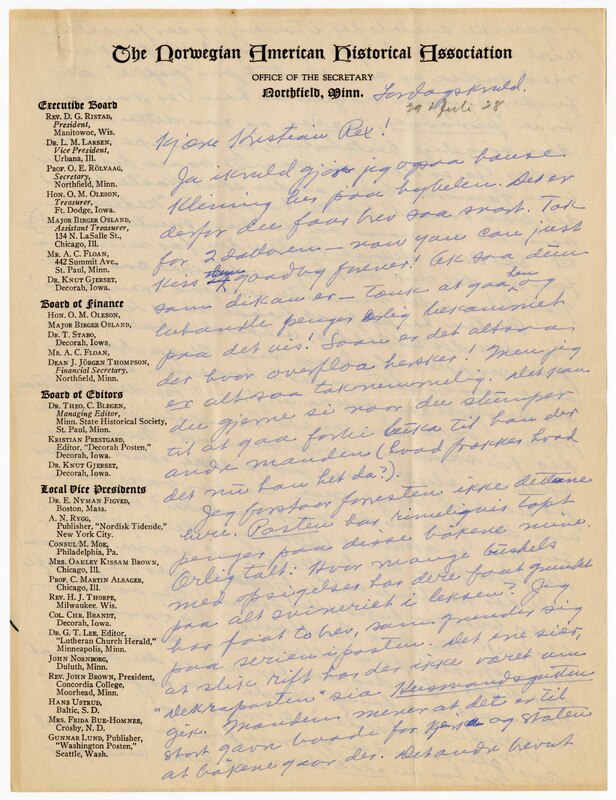 The Norwegian American Historical Association
OFFICE OF THE SECRETARY
Northfield, Minn.
Executive Board
REV. D. G. RISTAD,
President,
Manitowoc, Wis.
DR. L. M. LARSEN,
Vice President,
Urbana, Ill.
PROF. O. E. RÖLVAAG,
Secretary,
Northfield, Minn.
HON. O. M. OLESON,
Treasurer,
Ft. Dodge, Iowa.
MAJOR BIRGER OSLAND,
Assistant Treasurer,
134 N. LaSalle St.,
Chicago, Ill.
MR. A. C. FLOAN,
442 Summit Ave.,
St. Paul, Minn.
DR. KNUT GJERSET,
Decorah, Iowa.
Board of Finance
HON. O. M. OLESON,
MAJOR BIRGER OSLAND,
DR. T. STABO,
Decorah, Iowa.
MR. A. C. FLOAN,
DEAN J. JÖRGEN THOMPSON,
Financial Secretary,
Northfield, Minn.
Board of Editors
DR. THEO. C. BLEGEN,
Managing Editor,
Minn. State Historical Society,
St. Paul, Minn.
KRISTIAN PRESTGARD,
Editor, "Decorah Posten,"
Decorah, Iowa.
DR. KNUT GJERSET,
Decorah, Iowa.
Local Vice Presidents
DR. E. NYMAN FIGVED,
Boston, Mass.
A. N. RYGG,
Publisher, "Nordisk Tidende,"
New York City.
CONSUL M. MOE,
Philadelphia, Pa.
MRS. OAKLEY KISSAM BROWN,
Chicago, Ill.
PROF. C. MARTIN ALSAGER,
Chicago, Ill.
REV. H. J. THORPE,
Milwaukee, Wis.
COL. CHR. BRANDT,
Decorah, Iowa.
DR. G. T. LEE, Editor,
"Lutheran Church Herald,"
Minneapolis, Minn.
JOHN NORNBORG,
Duluth, Minn.
REV. JOHN BROWN, President,
Concordia College,
Moorhead, Minn.
HANS USTRUD,
Baltic, S. D.
MRS. FRIDA BUE-HOMNES,
Crosby, N. D.
GUNNAR LUND, Publisher,
"Washington Posten,"
Seattle, Wash.
Lordagskveld.
Juli 28
Kjære Kristian Rex!
Ja ikveld gjør jeg ogsaa
her paa hybelen. Det er
derfor du faar brev saa snart. Tak
for 2 — now you can just
kiss them goodby forever! Ak saa
som er — tænk at gaa hen og
penger
paa det vis! Saan er det altsaa
der hvor overfloa hersker! Men jeg
er altsaa taknemmelig. Det kan
du gjerne si naar du
til at gaa til han der
andre manden (hvad hvad
det nu han het da?).
Jeg forstaar forresten ikke dette
here. Posten har rimeligvis tapt
penger paa disse bøkene mine.
Ærlig talt: Hvor mange
med opsigelser har dere faat grundet
paa alt svineriet i leksen? Jeg
har faat to brev, som grunder sig
paa serien i posten. Det ene sier,
at slik rift har der ikke været om
"Dekraposten" sia Husmandsgutten
gik. Manden mener at det er til
stort gavn baade for og staten
at bøkene gaar der. Det andre brevet